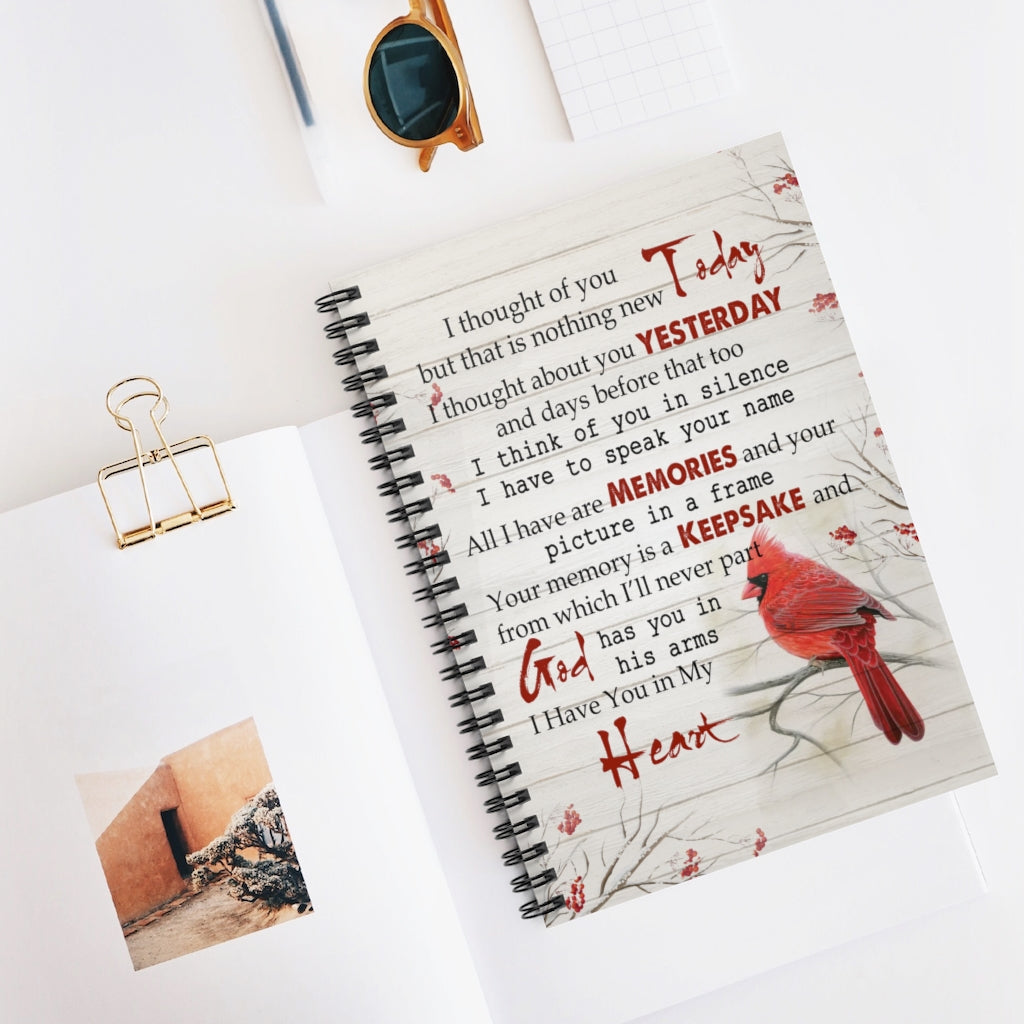 I thought of you Today
but that is nothing new
I thought about you YESTERDAY
and days before that too
I think of you in silence
I have to speak your name
All I have are MEMORIES and your
picture in a frame
Your memory is a KEEPSAKE and
from which I'll never part
God has you in
his arms
I Have You in My
Heart